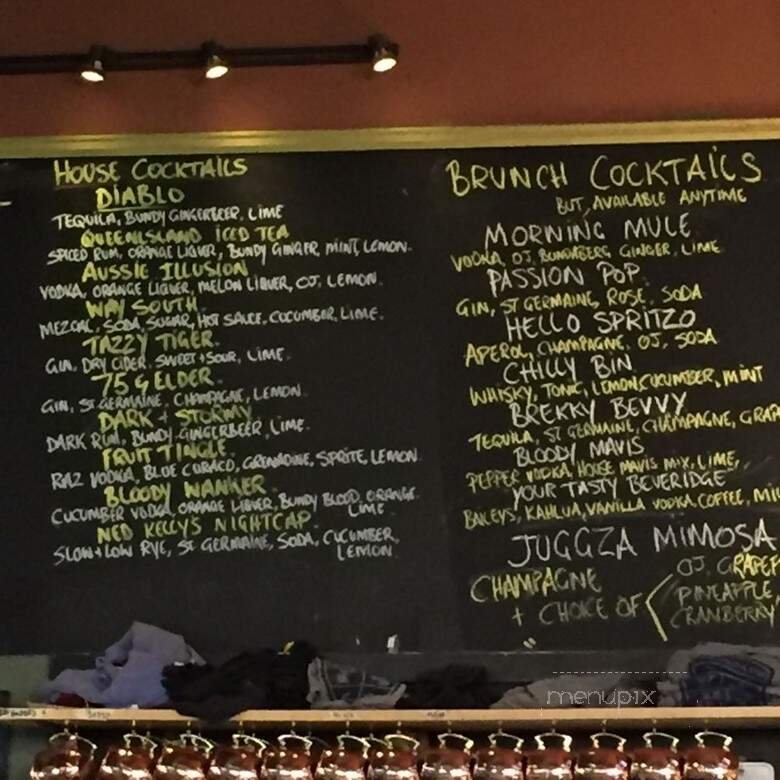 HOUSE COCKTAILS
DIABLO
TEQUILA, BUNDY GINGERBEER, LIME
QUEENLSLAND ICED TEA
SPICED RUM, ORANGE LIQUER, BUNDY GINGER, MINT, LEMON.
AUSSIE ILLUSION
VODKA, ORANGE LIQUER, MELON LIQUER, OJ, LEMON.
WAY SOUTH
MEZCAL, SODA, SUGAR, HOT SAUCE, CUCUMBER, LIME.
TAZZY TIGER.
GIN, DRY CIDER, SWEET + SOUR, LIME.
75 G ELDER.
GIN, ST GERMAINE, CHAMPAGNE, LEMON.
DARK + STORMY
DARK RUM, BUNDY GINGERBEER, LIME.
FRUIT TINGLE.
RAZ VODKA, BLUE CURACO, GRENADINE, SPRITE, LEMON.
BLOODY WANKER.
CUCUMBER VODKA, ORANGE LIQUER, BUNDY BLOOD, ORANGE.
LIME.
NED KELLY'S NIGHTCAP.
SLOW + LOW RYE, ST GERMAINE, SODA, CUCUMBER,
LEMON.
BRUNCH COCKTAILS
BUT, AVAILABLE ANYTIME
MORNING MULE
VODKA, OJ, BUNDABERG GINGER, LIME
PASSION POP.
GIN, ST GERMAINE, ROSE, SODA
HELLO SPRITZO
APEROL, CHAMPAGNE, OJ, SODA
CHILLY BIN
WHISKY, TONIC, LEMON, CUCUMBER, MINT
BREKKY BEVVY
TEQUILA, ST GERMAINE, CHAMPAGNE, GRAP
BLOODY MAVIS
PEPPER VODKA, HOUSE MAVIS MIX, LIME,
YOUR TASTY BEVERIDGE
BAILEYS, KAHLUA, VANILLA VODKA, COFFEE, MI
JUGGZA MIMOSA
CHAMPAGNE
+ CHOICE OF
OJ, GRAPEF
PINEAPPLE,
CRANBERRY
menupix